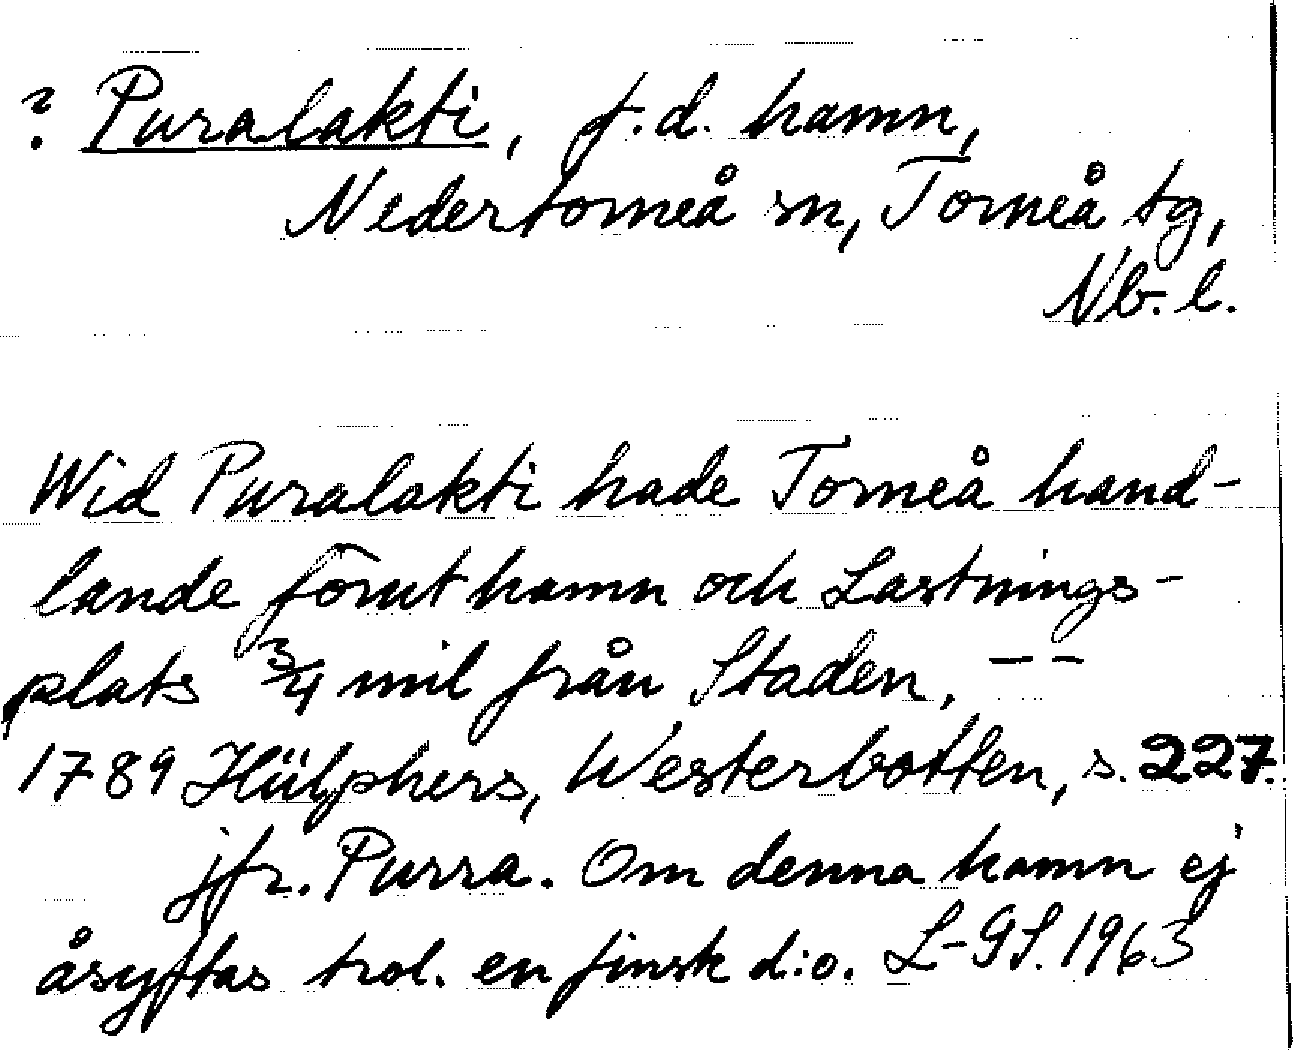 ? Puralakti, f.d. hamn,
Nedertorneå sn, Torneå tg,
Nb. l.
Wid Puralakti hade Torneå hand-
lande förut hamn och Lastnings-
plats 3/4 mil från Staden. – –
1789 Hülphers, Westerbotten, s. 227.
jfr. Purra. Om denna hamn ej
åsyftas trol. en finsk d:o. L-GS. 1963